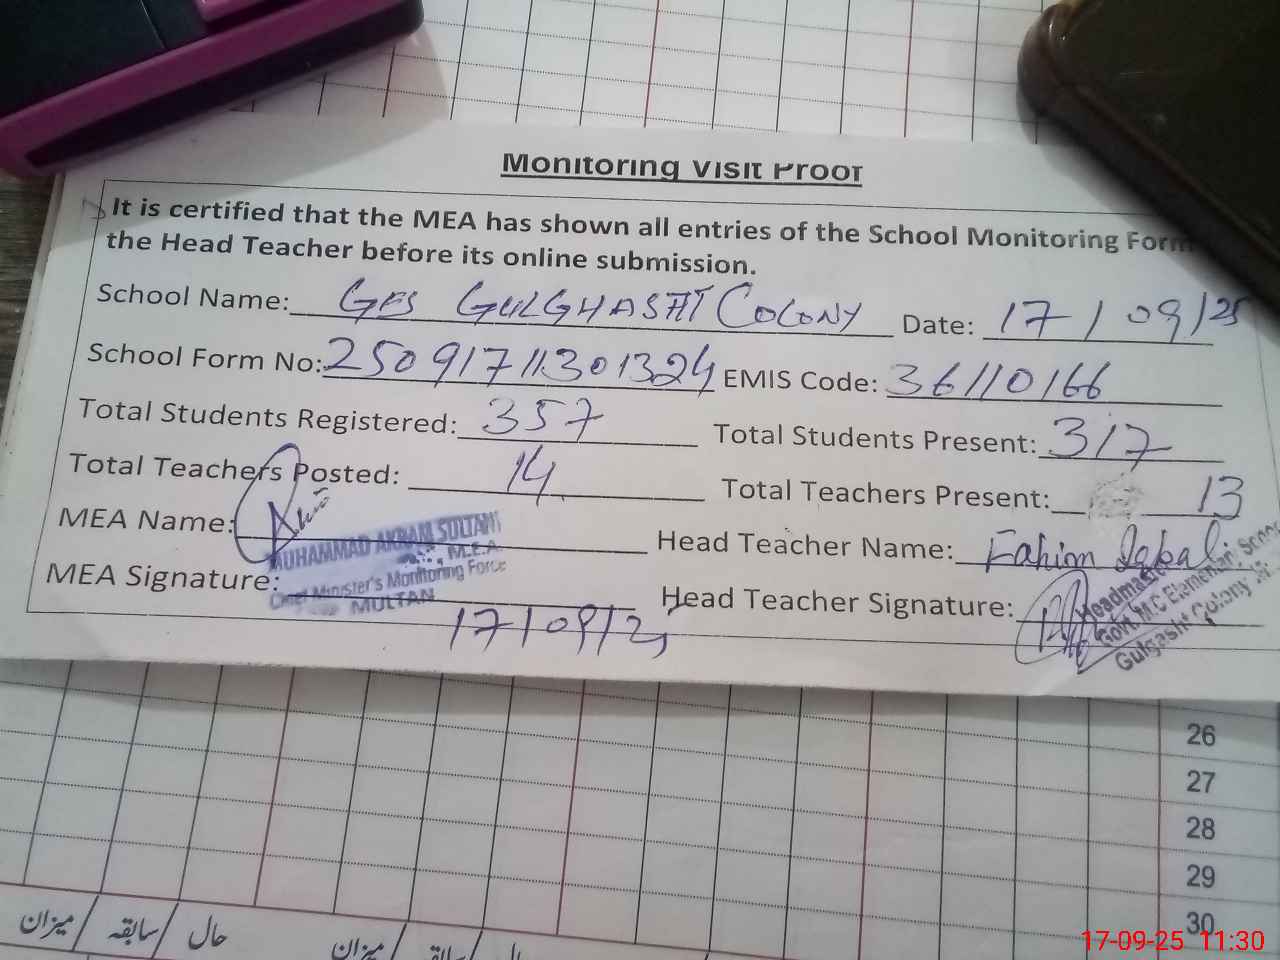 Monitoring Visit Proof
It is certified that the MEA has shown all entries of the School Monitoring Form
the Head Teacher before its online submission.
School Name: GES GULGHASHT COLONY Date: 17/09/25
School Form No: 25091711301324 EMIS Code: 36110166
Total Students Registered: 357 Total Students Present: 317
Total Teachers Posted: 14 Total Teachers Present: 13
MEA Name: Head Teacher Name: Fahim Iqbal
MUHAMMAD AKRAM SULTANI
M.E.A
MEA Signature: Head Teacher Signature:
Chief Minister's Monitoring Force
MULTAN
Headmaster
Govt. M.C Elementary School
Gulgasht Colony
17/09/25
26
27
28
29
30
میزان سابقہ حال میزان
17-09-25 11:30